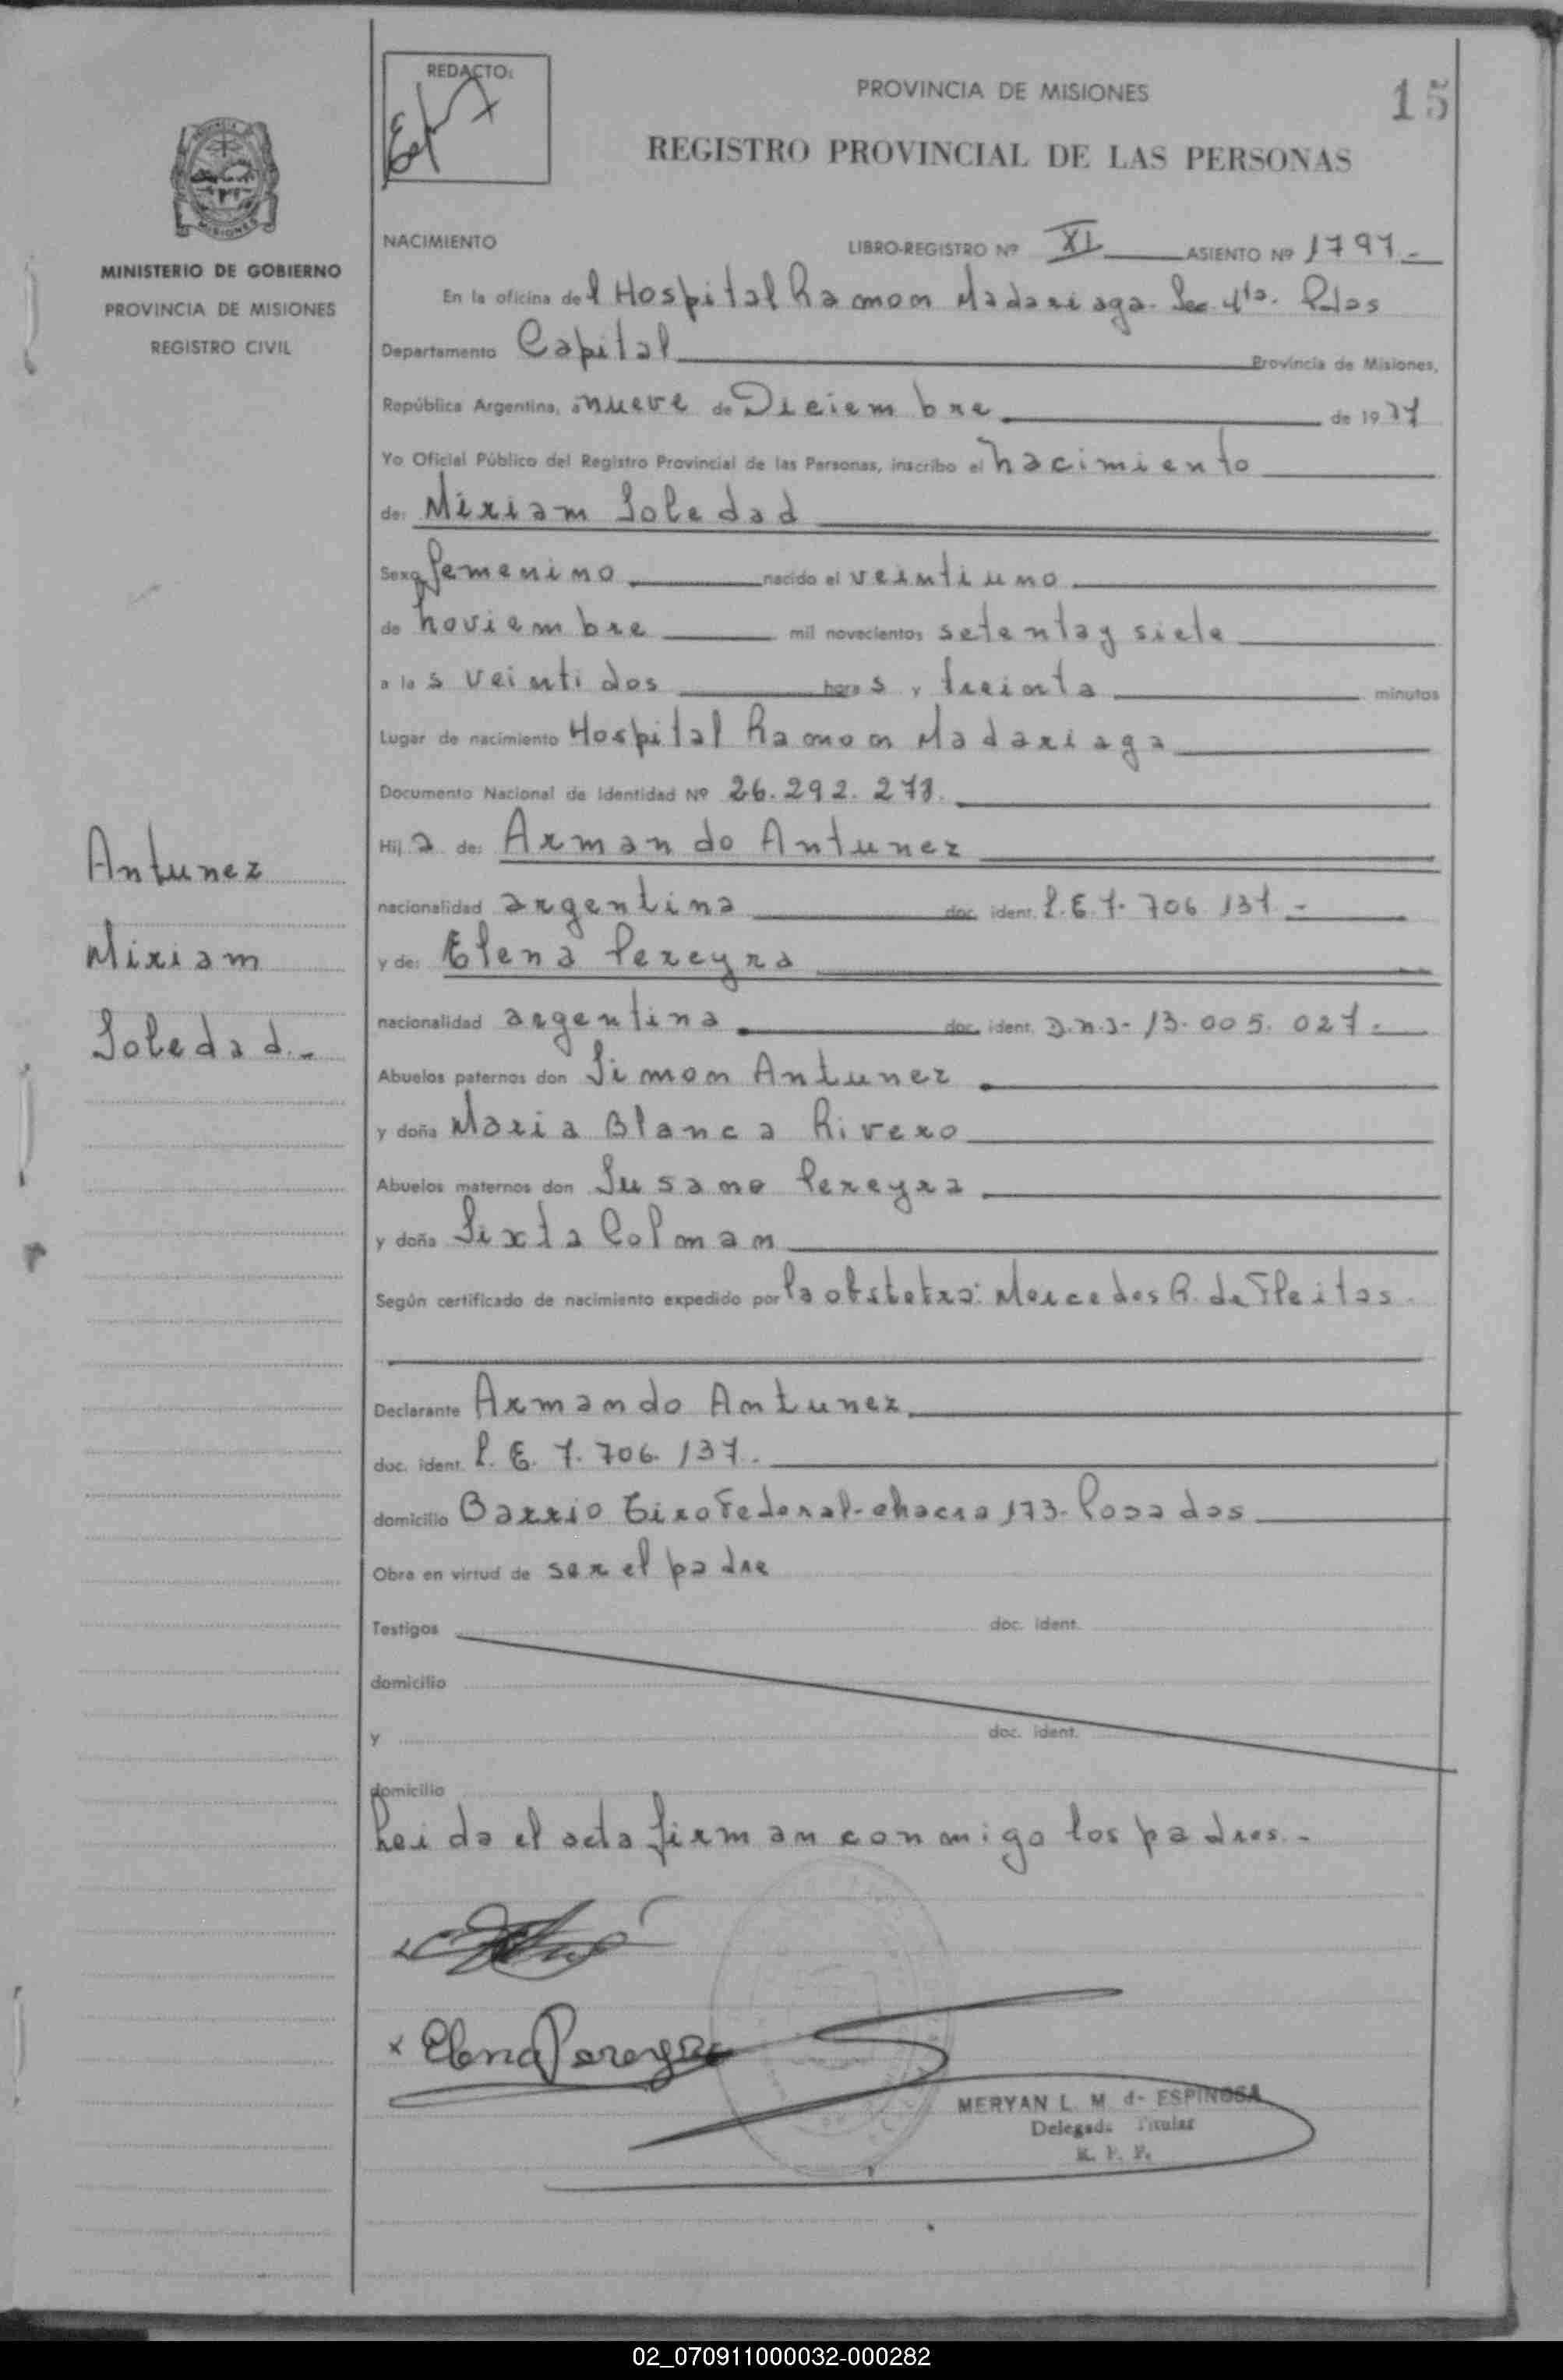 REDACTO:
PROVINCIA DE MISIONES
15
REGISTRO PROVINCIAL DE LAS PERSONAS
MINISTERIO DE GOBIERNO
PROVINCIA DE MISIONES
REGISTRO CIVIL
NACIMIENTO LIBRO-REGISTRO Nº XI ASIENTO Nº 1797.-
En la oficina del Hospital Ramon Madariaga. Sec. 4ta. Pdas
Departamento Capital Provincia de Misiones,
República Argentina, a nueve de Diciembre de 1977
Yo Oficial Público del Registro Provincial de las Personas, inscribo el nacimiento
de: Miriam Soledad
Sexo femenino nacido el veintiuno
de noviembre mil novecientos setenta y siete
a las veintidos horas y treinta minutos
Lugar de nacimiento Hospital Ramon Madariaga
Documento Nacional de Identidad Nº 26.292.278.
Hija de: Armando Antunez
nacionalidad argentina doc. ident. L.E. 7.706.137.-
y de: Elena Pereyra
nacionalidad argentina. doc. ident. D.N.I- 13.005.027.-
Abuelos paternos don Simon Antunez
y doña Maria Blanca Rivero
Abuelos maternos don Susano Pereyra
y doña Sixta Colman
Según certificado de nacimiento expedido por la obstetra: Mercedes R. de Fleitas.
Declarante Armando Antunez
doc. ident. L.E. 7.706.137.
domicilio Barrio Tiro Federal-chacra 173-Posadas
Obra en virtud de ser el padre
Testigos doc. ident.
domicilio
y doc. ident.
domicilio
Leida el acta firman conmigo los padres.-
Antunez
Miriam
Soledad.-
x Elena Pereyra
MERYAN L. M. de ESPINOSA
Delegada Titular
R. P. P.
02_070911000032-000282